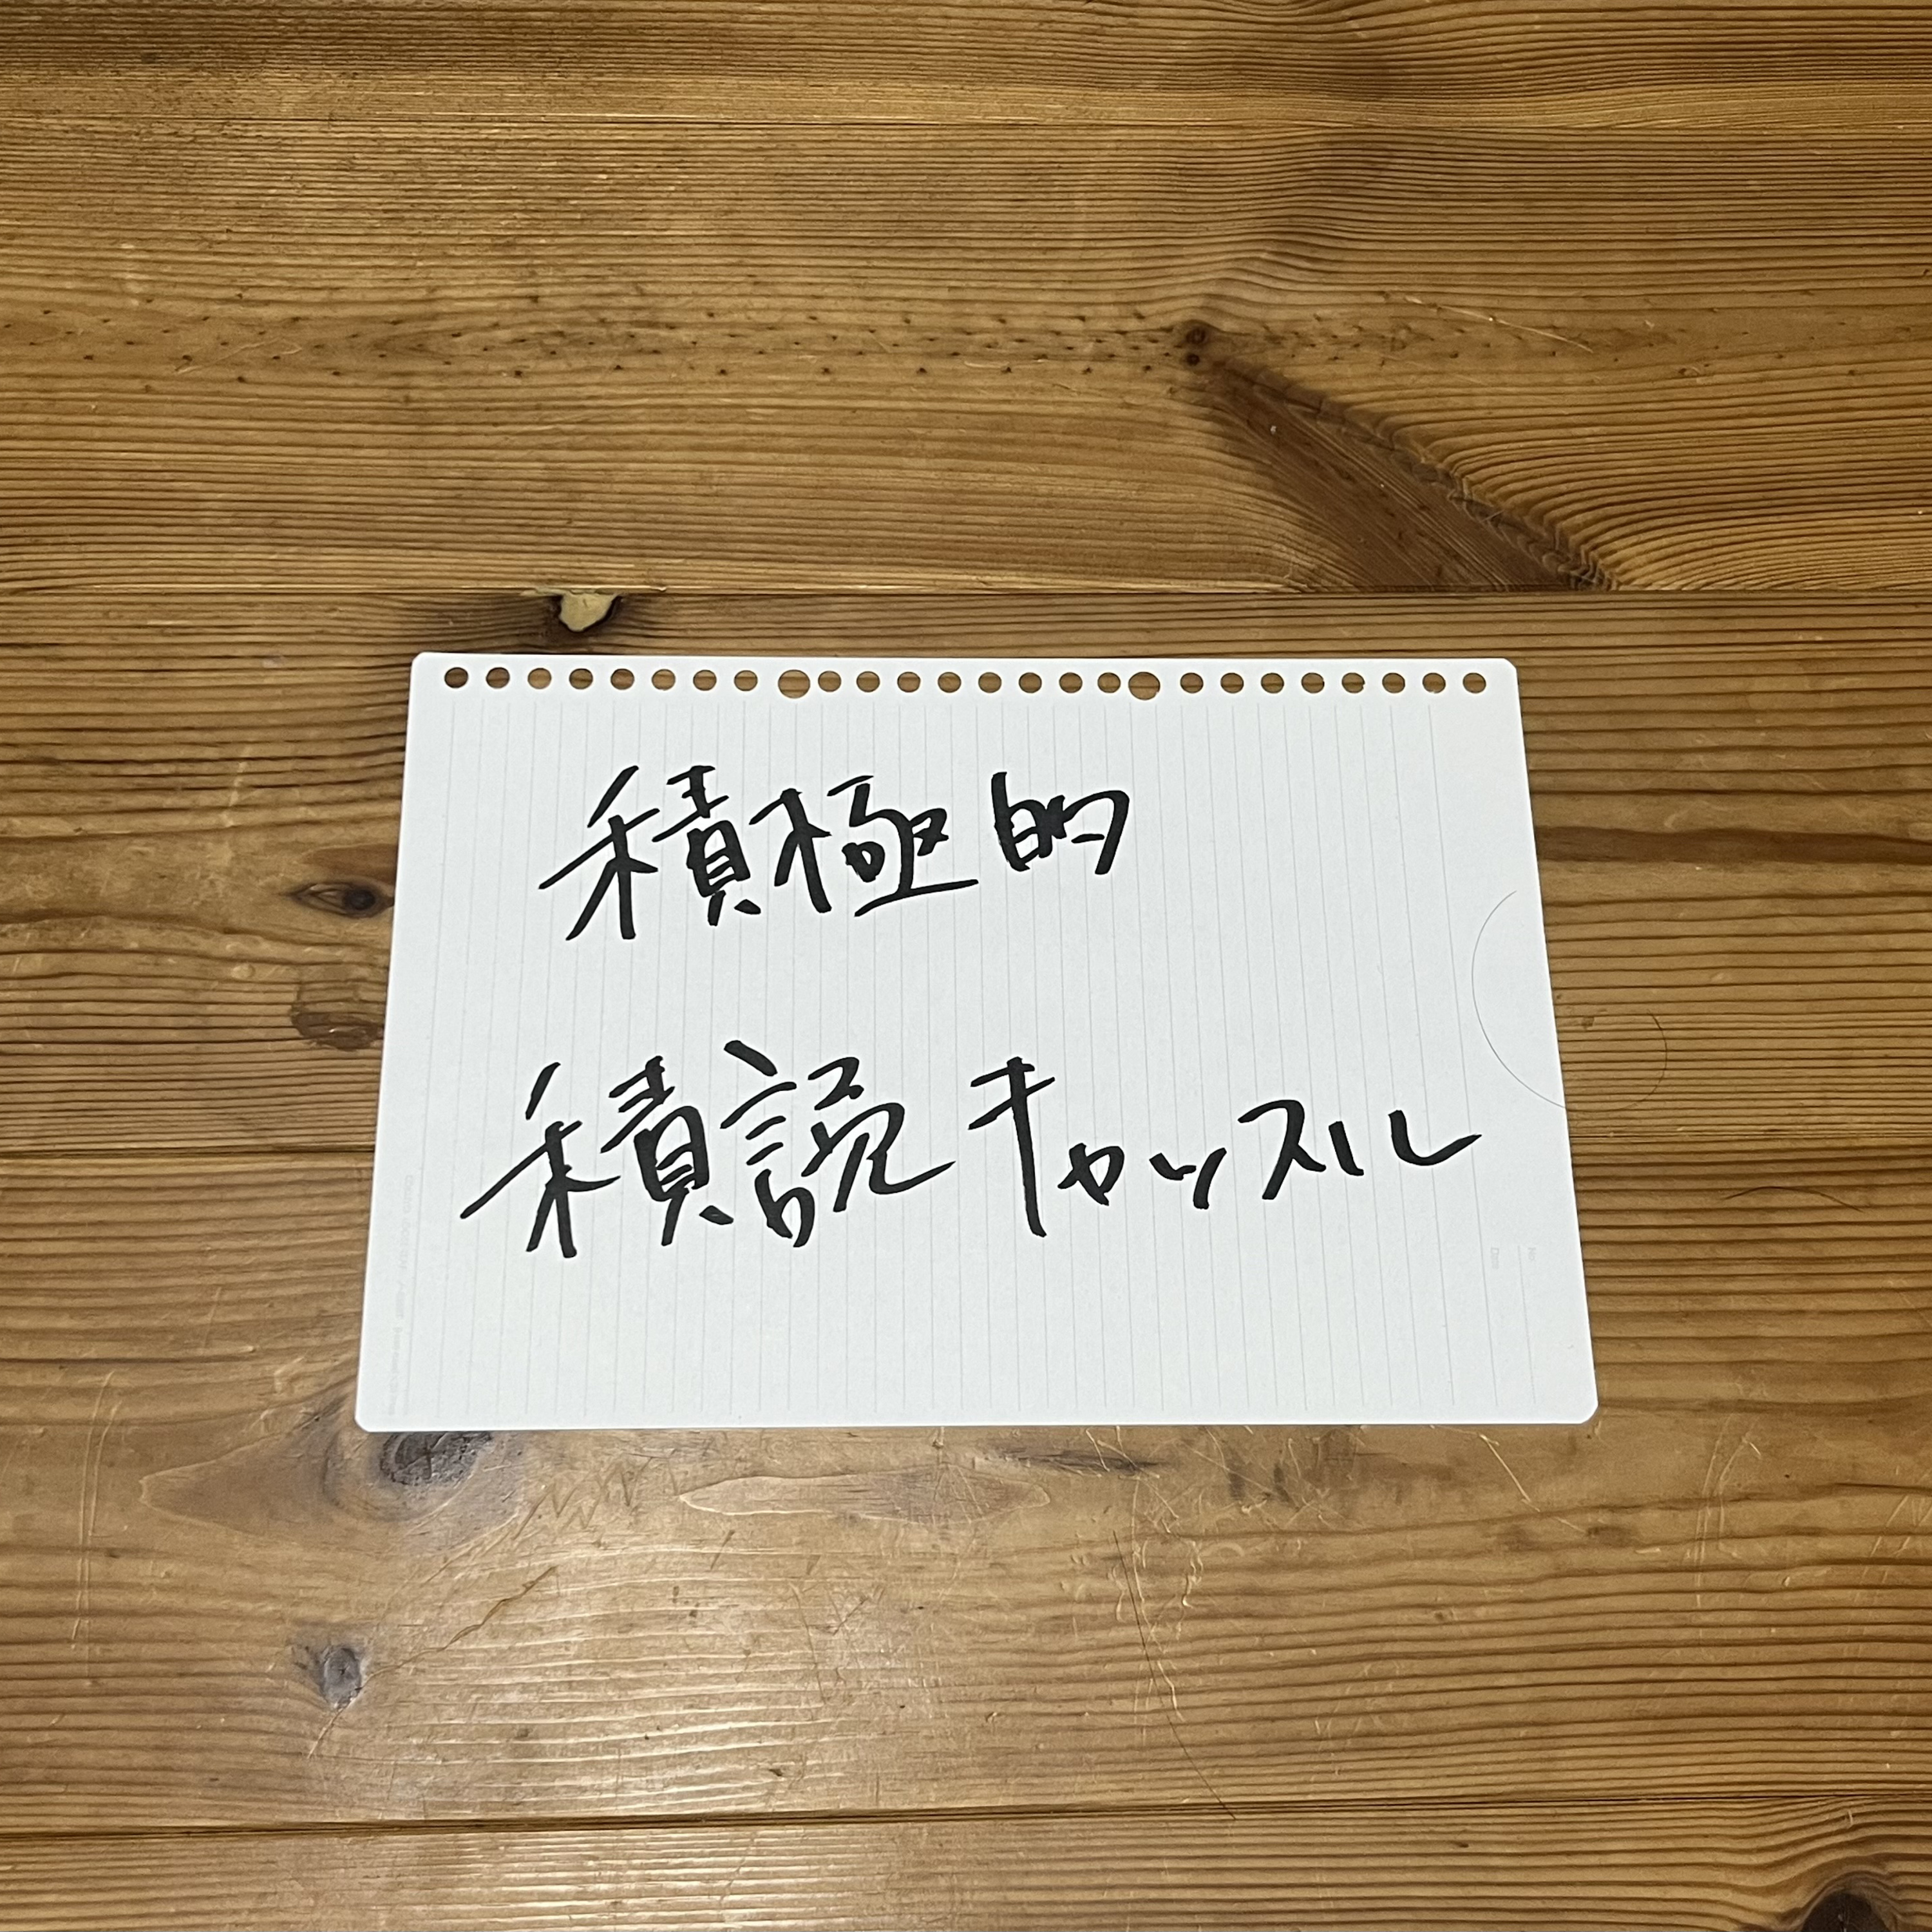 積極的
積読キャッスル